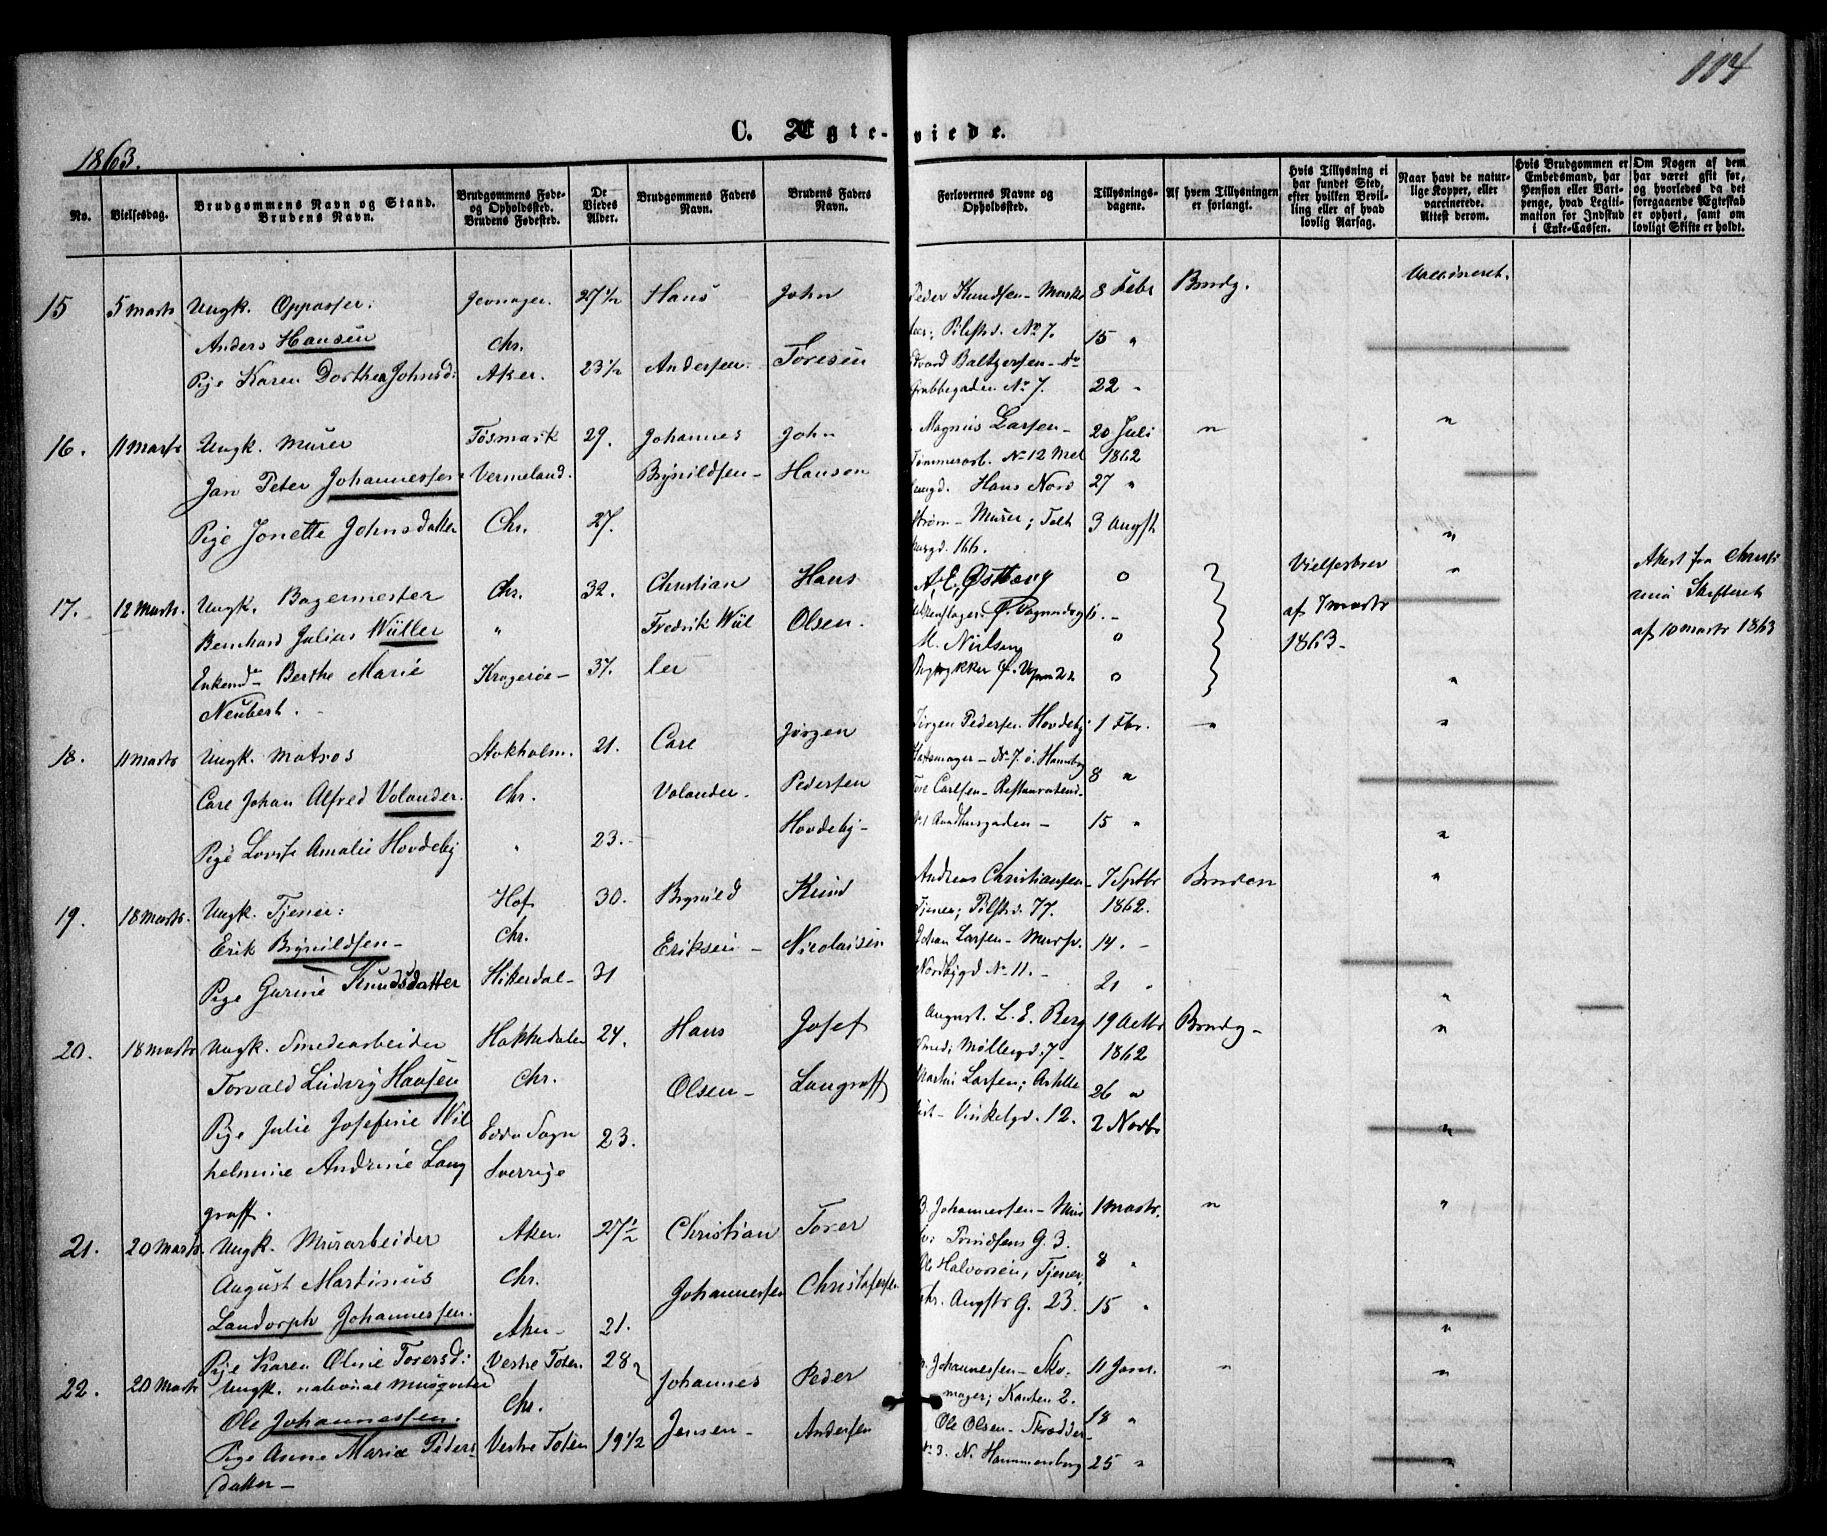 114
C. Ægte-viede.
1863.
No.
Vielsesdag.
Brudgommens Navn og Stand.
Brudens Navn.
Brudgommens Føde-
og Opholdssted.
Brudens Fødested.
De
Viedes
Alder.
Brudgommens Faders
Navn.
Brudens Faders
Navn.
Forlovernes Navne og
Opholdssted.
Tillysnings-
dagene.
Af hvem Tillysningen
er forlangt.
Hvis Tillysning ei
har fundet Sted,
efter hvilken Bevil-
ling eller af hvad
lovlig Aarsag.
Naar havt de natur-
lige Kopper, eller
vaccinerede.
Attest derom.
Hvis Brudgommen er
Embedsmand, har
Pension eller Vart-
penge, hvad Legiti-
mation for Indskud
i Enke-Cassen.
Om Nogen af dem
har været gift før,
og hvorledes da det
foregaaende Ægteskab
er ophørt, samt om
lovligt Skifte er holdt.
15 5 Marts Ungk. Oppasser: Jevnager. 27 1/2 Hans John Peder Knudsen - 8 Febr Brudg. Vaccineret.
Anders Hansen Chr. Pilestd. No 7. 15 "
Pige Karen Dorthea Johnsd: Aker. 23 1/2 Andersen. Toresen Edvard Baltzersen - do
Grubbegaden No 7. 22 "
16. 11 Marts Ungk. Murer Tøsmark 29. Johannes John Magnus Larsen - 20 Juli " "
Jan Peter Johannessen Vermeland. Brynildsen - Hansen Tømmerarb. No 12 1862
Hans Nord 27 "
Pige Jonette Johnsdatter Chr. 27. strøm - Murer; 3 Augst "
166.
17. 12 Marts. Ungk. Bagermester Chr. 32. Christian Hans A. E. Østbang o Vielsesbrev " Attest fra Christi
Bernhard Julius Wüller " Fredrik Wül Olsen. af 7 Marts ania Skifteret
M. Nielsen o 1863 - af 10 Marts 1863
Enkemd Berthe Marie Kragerøe - 37. ler o "
Neubert. -
18. 11 Marts Ungk. Matros Stokholm. 21. Carl Jørgen Jørgen Pedersen Hovdeby 1 Fbr. " "
Carl Johan Alfred Volander. Chr. Volander - Pedersen No 7. 8 "
Tore Carlsen - Restaurationd
Pige Lovise Amalie Hovdeby " 23. - Hovdeby - Raadhusgaden - 15 " "
19. 18 Marts. Ungk. Tjener: Hof 30. Brynild Knud Andreas Christiansen - 7 Septbr Bruden "
Erik Brynildsen - Chr. Eriksen - Nicolaisen Tjener; Pilestd. 77. 1862.
Johan Larsen - 14. -
Pige Gurine Knudsdatter Hitterdal - 31 No 11. - 21 " "
20. 18 Marts Ungk. Smedearbeider Hakkedalen 24. Hans Josef August L. E. Berg 19 Octbr Brudg - "
Torvald Ludvig Hansen Chr. Olsen - Langraff Smed; Møllergd. 7 - 1862
Martin Larsen; 26 "
Pige Julie Josefine Wil Edda Sogn 23. Vinkelgd. 12. 2 Novbr "
helmine Andrine Lang Sverrige
graff.
21. 20 Marts. Ungk. Murarbeider Aker. 27 1/2 Christian Torer B. Johannessen - Mur 1 Marts. " "
August Martinius Chr. Johannessen Christofersen G. 3.
Landorph Johannessen. Ole Halvorsen, Tjener, 8 "
Pige Karen Oline Torersd: Aker - 21. G. 23. 15 " "
22. 20 Marts Ungk. national Musqveter Vestre Toten. 28 Johannes Peder Johannessen - Sko 11 Janr. " "
Ole Johannessen. Chr. Jensen - Andersen mager; Kanten 2.
Pige Anne Marie Peders Vestre Toten 19 1/2 Ole Olsen - Skrædder - 18 "
datter - No 3. N. Hammersborg 25 " "